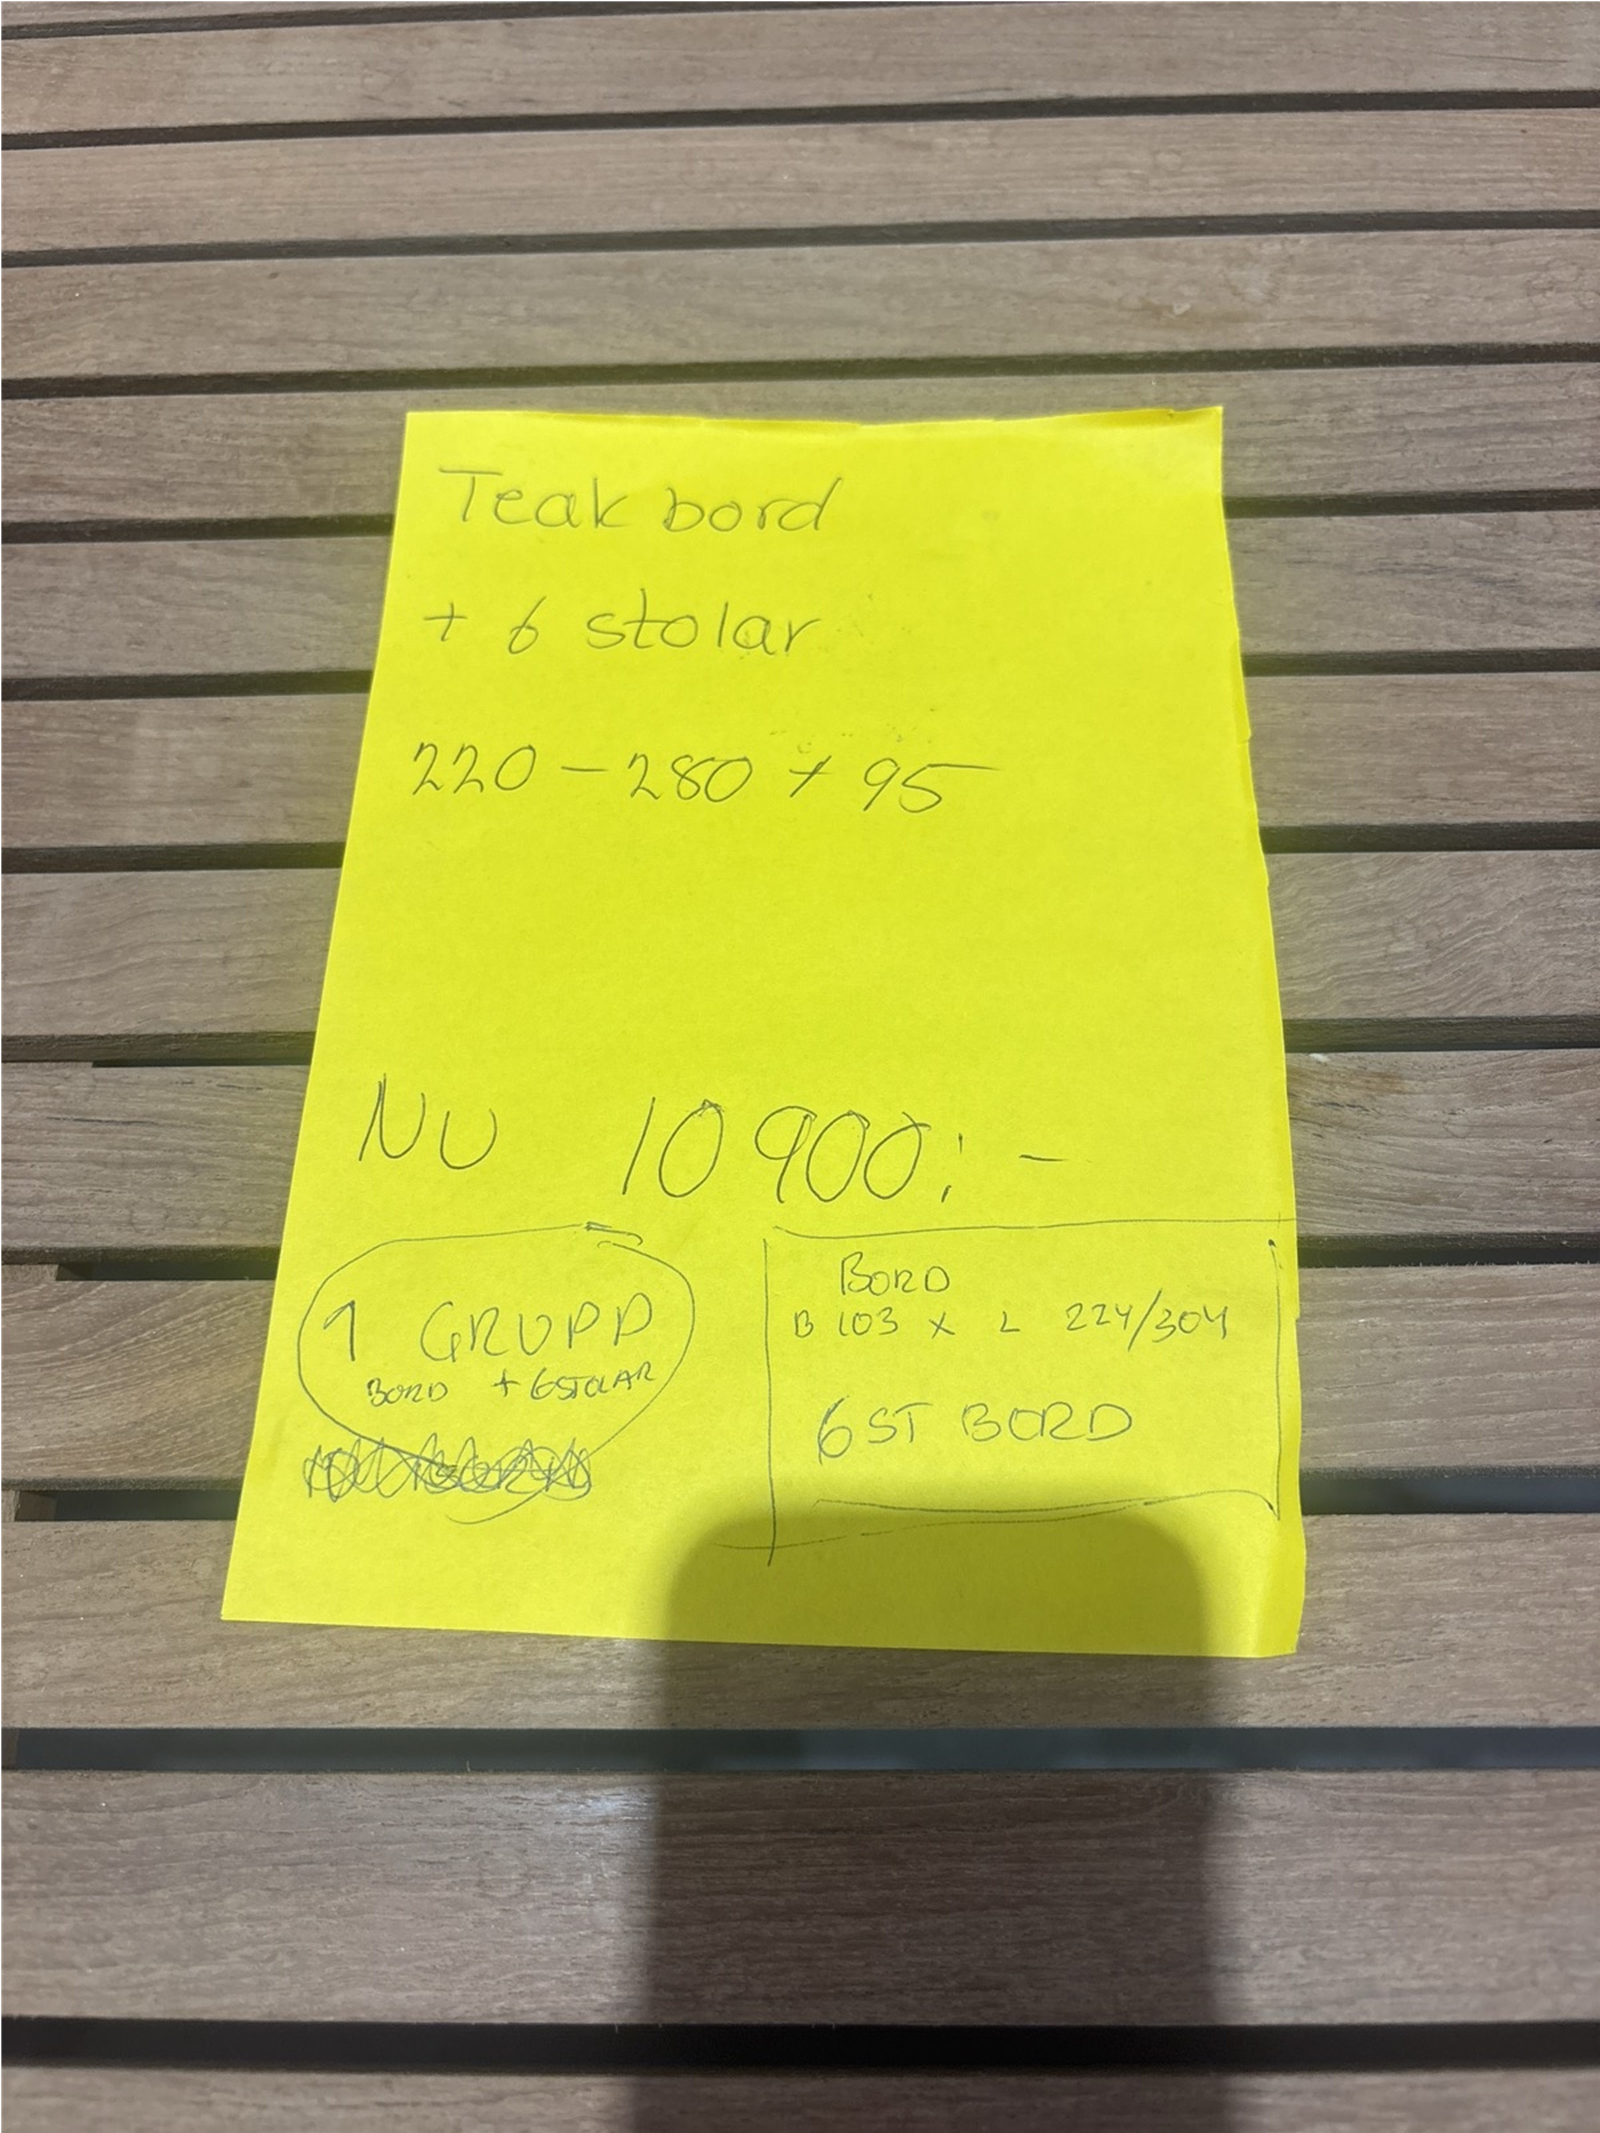 Teak bord
+ 6 stolar
220 - 280 x 95
NU 10 900:-
1 GRUPP
BORD + 6 STOLAR
BORD
B 103 X L 224/304
6 ST BORD